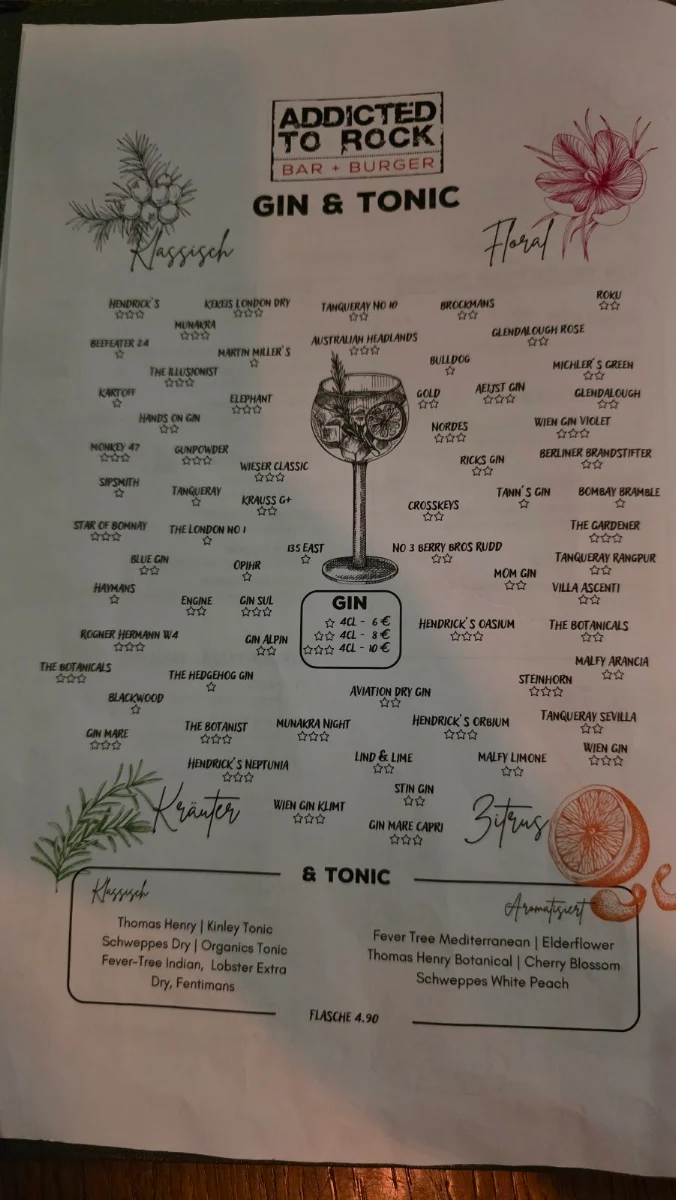 ADDICTED
TO ROCK
BAR + BURGER
GIN & TONIC
Klassisch
Floral
HENDRICK'S
☆☆☆
KEKEIS LONDON DRY
☆☆☆
TANQUERAY NO 10
☆☆
BROCKMANS
☆☆
ROKU
☆☆
MUNAKRA
☆☆☆
GLENDALOUGH ROSE
☆☆
BEEFEATER 24
☆
MARTIN MILLER'S
☆
AUSTRALIAN HEADLANDS
☆☆☆
BULLDOG
☆
MICHLER'S GREEN
☆☆
THE ILLUSIONIST
☆☆☆
KARTOFF
☆
ELEPHANT
☆☆☆
GOLD
☆☆
AEIJST GIN
☆☆☆
GLENDALOUGH
☆☆
HANDS ON GIN
☆☆
NORDES
☆☆☆
WIEN GIN VIOLET
☆☆☆
MONKEY 47
☆☆☆
GUNPOWDER
☆☆☆
WIESER CLASSIC
☆☆☆
RICKS GIN
☆☆
BERLINER BRANDSTIFTER
☆☆
SIPSMITH
☆
TANQUERAY
☆
KRAUSS G+
☆☆
CROSSKEYS
☆☆
TANN'S GIN
☆
BOMBAY BRAMBLE
☆
STAR OF BOMBAY
☆☆☆
THE LONDON NO 1
☆
THE GARDENER
☆☆☆
BLUE GIN
☆☆
OPIHR
☆
135 EAST
☆
NO 3 BERRY BROS RUDD
☆☆
MOM GIN
☆☆
TANQUERAY RANGPUR
☆☆
HAYMANS
☆
ENGINE
☆☆
GIN SUL
☆☆☆
VILLA ASCENTI
☆☆
GIN
☆ 4CL - 6 €
☆☆ 4CL - 8 €
☆☆☆ 4CL - 10 €
ROGNER HERMANN W4
☆☆☆
GIN ALPIN
☆☆
HENDRICK'S OASIUM
☆☆☆
THE BOTANICALS
☆☆
THE BOTANICALS
☆☆☆
THE HEDGEHOG GIN
☆
MALFY ARANCIA
☆☆
STEINHORN
☆☆☆
BLACKWOOD
☆
AVIATION DRY GIN
☆☆
GIN MARE
☆☆☆
THE BOTANIST
☆☆☆
MUNAKRA NIGHT
☆☆☆
HENDRICK'S ORBIUM
☆☆☆
TANQUERAY SEVILLA
☆☆
HENDRICK'S NEPTUNIA
☆☆☆
LIND & LIME
☆☆
MALFY LIMONE
☆☆
WIEN GIN
☆☆☆
Kräuter
WIEN GIN KLIMT
☆☆☆
STIN GIN
☆☆
GIN MARE CAPRI
☆☆☆
Zitrus
& TONIC
Klassisch
Thomas Henry | Kinley Tonic
Schweppes Dry | Organics Tonic
Fever-Tree Indian, Lobster Extra
Dry, Fentimans
Aromatisiert
Fever Tree Mediterranean | Elderflower
Thomas Henry Botanical | Cherry Blossom
Schweppes White Peach
FLASCHE 4,90